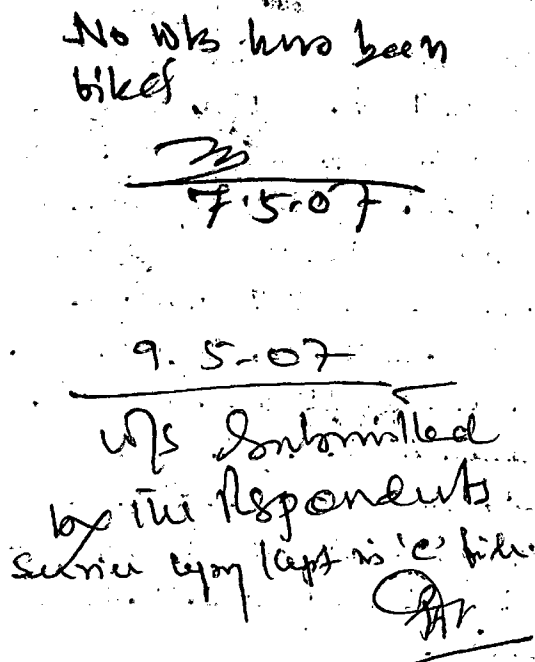 No W/s has been
filed
7.5.07.
9.5.07
W/s Submitted
by the Respondents.
Service copy kept in 'C' file.